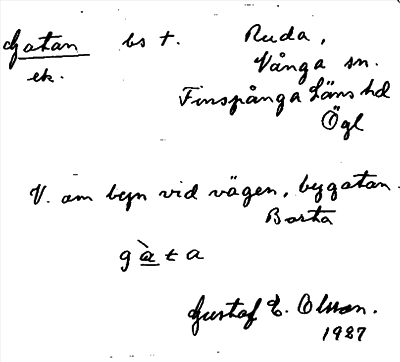 Gatan bs t. Ruda,
ek. Vånga sn.
Finspånga Läns hd
Ögl
V. om byn vid vägen, bygatan.
Barta
g à t a
Gustaf E. Olsson.
1927